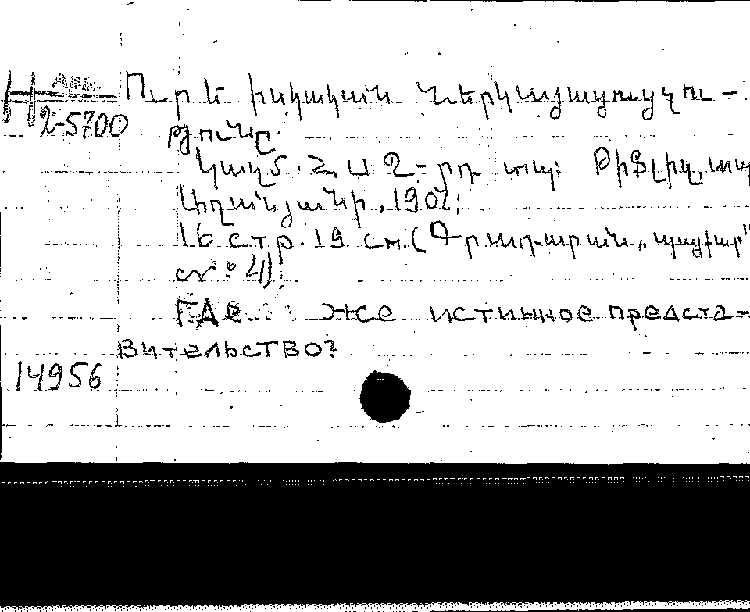 Ուր է իսկական ներկայացուցչու-
թյունը.
Կազմ. Հ. Ա 2-րդ տպ: Թիֆլիզ, տպ
Աղանյանի, 1902;
16 стр. 19 см. (Գրադարան „պայքար"
№ 4);
Где же истинное предста-
вительство?
2-5700
14956